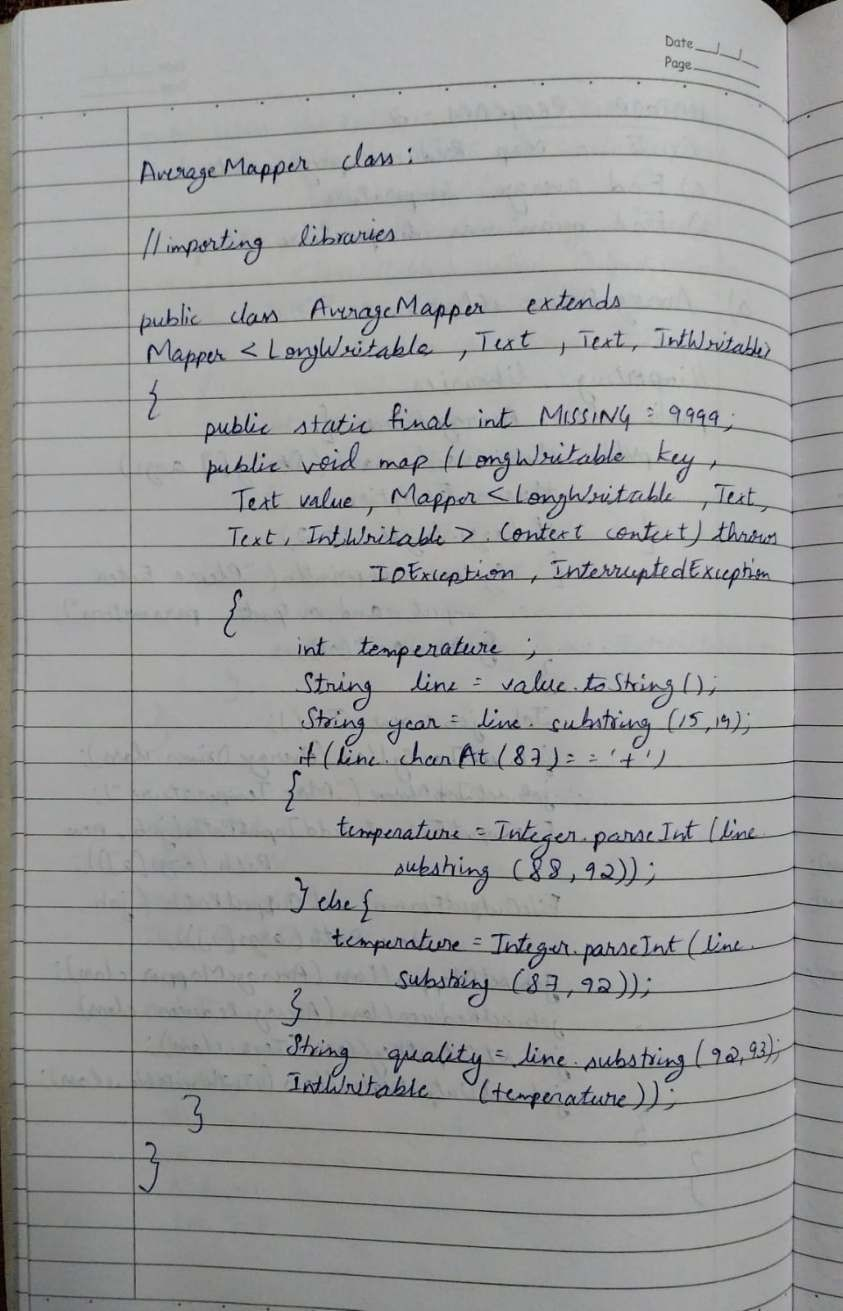 Date
Page
AverageMapper class:
//importing libraries
public class AverageMapper extends
Mapper < LongWritable , Text , Text, IntWritable>
{
public static final int MISSING = 9999;
public void map (LongWritable key,
Text value, Mapper < LongWritable , Text,
Text, IntWritable >. Context context) throws
IOException , InterruptedException
{
int temperature ;
String line = value.toString();
String year = line. substring (15,19);
if (line. charAt (87) = = '+')
{
temperature = Integer.parseInt (line.
substring (88, 92));
} else {
temperature = Integer.parseInt (line.
substring (87, 92));
}
String quality = line.substring (92,93);
IntWritable (temperature));
}
}